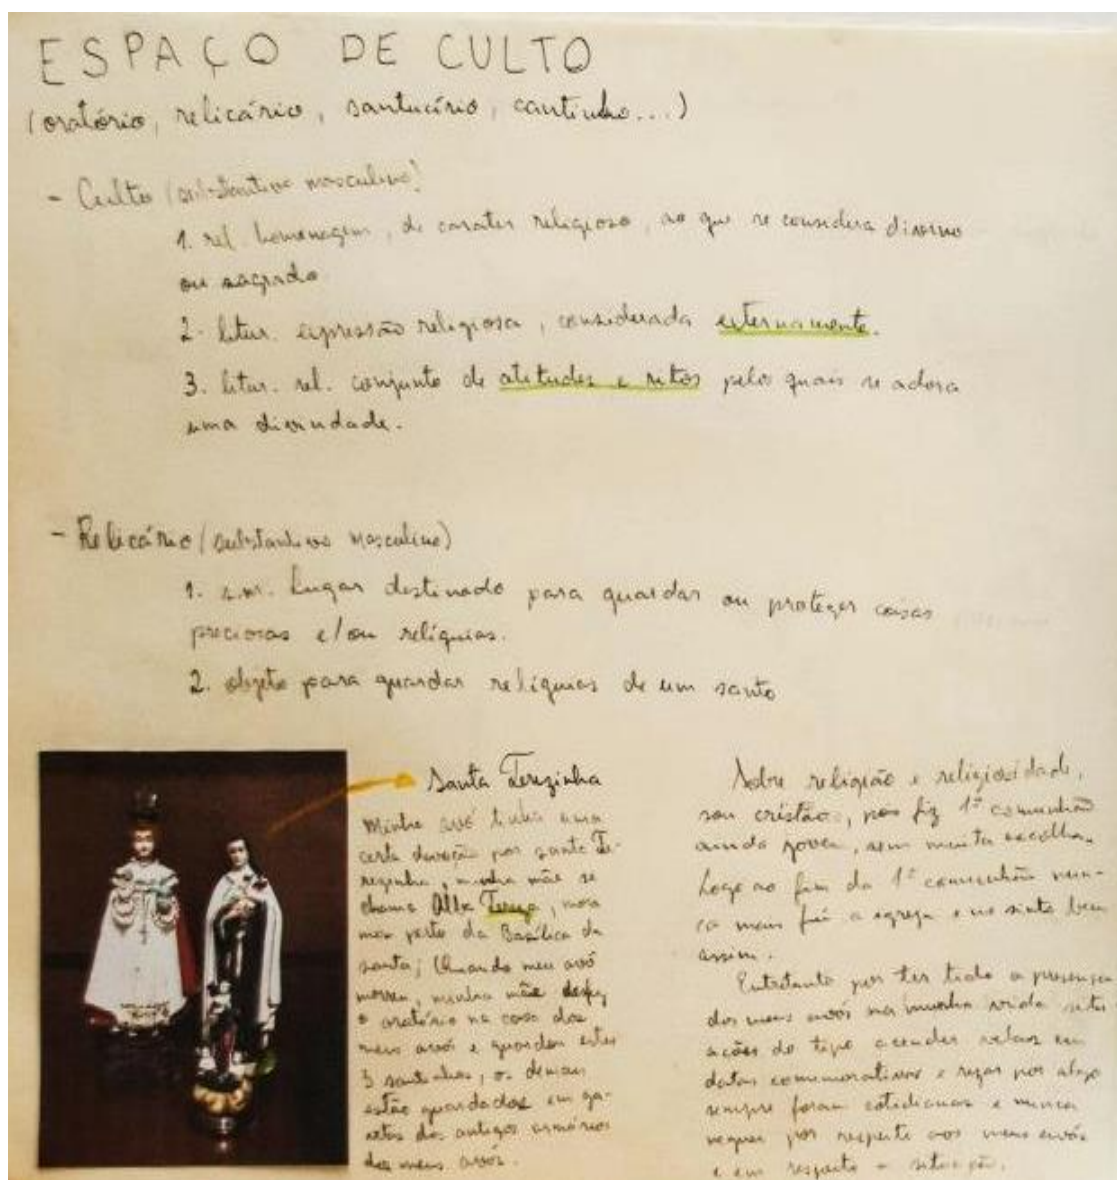 ESPAÇO DE CULTO
(oratório, relicário, santuário, cantinho...)
- Culto (substantivo masculino)
1. rel. homenagem, de carater religioso, ao que se considera divino
ou sagrado
2. litur. expressão religiosa, considerada externamente.
3. litur. rel. conjunto de atitudes e ritos pelos quais se adora
uma divindade.
- Relicário (substantivo masculino)
1. s.m. lugar destinado para guardar ou proteger coisas
preciosas e/ou relíquias.
2. objeto para guardar relíquias de um santo
Santa Terezinha
Minha avó tinha uma
certa devoção por santa Te-
rezinha, minha mãe se
chama Tereza,
perto da Basílica da
santa; Quando meu avô
morreu, minha mãe desfez
o oratório na casa dos
meus avós e guardou estes
3 santinhos, os demais
estão guardados em ga-
vetas dos antigos armários
dos meus avós.
Sobre religião e religiosidade,
sou cristão, pois fiz 1ª comunhão
ainda jovem, sem muita escolha.
Logo ao fim da 1ª comunhão nun-
ca mais fui a igreja e me sinto bem
assim.
Entretanto por ter tido a presença
dos meus avós na minha vida
ações do tipo acender velas em
datas comemorativas e rezar por algo
sempre foram cotidianas e nunca
neguei por respeito aos meus avós
e em respeito a situação.